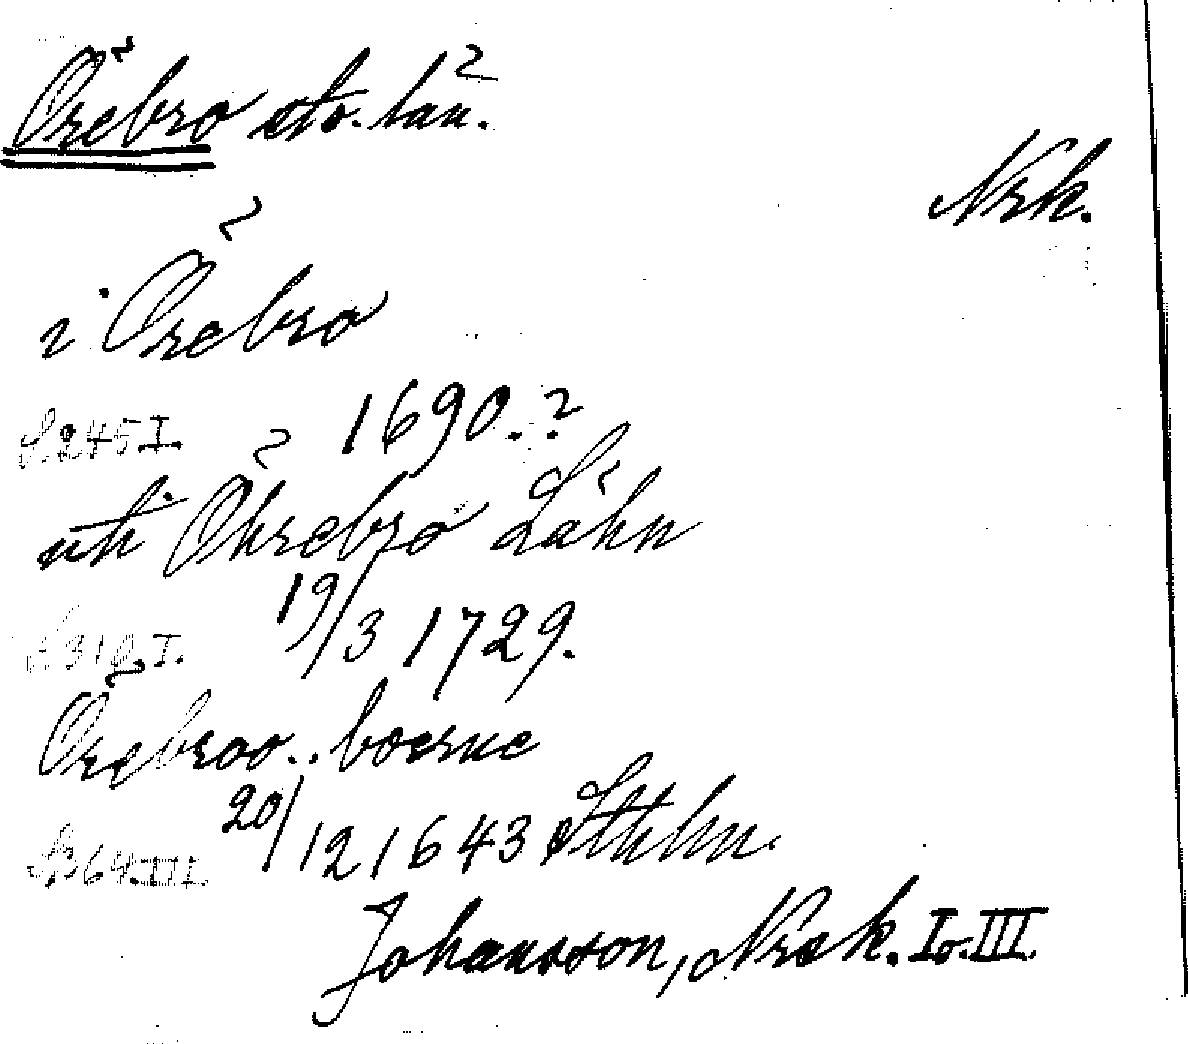 Örebro sto. län.
Nrk.
i Örebro
S. 245 I. 1690.?
uti Öhrebro Lähn
S. 310. I. 19/3 1729.
Örebroo.. boerne
S. 364. III. 20/12 1643 Sthlm.
Johansson, Nrek. I o. III.